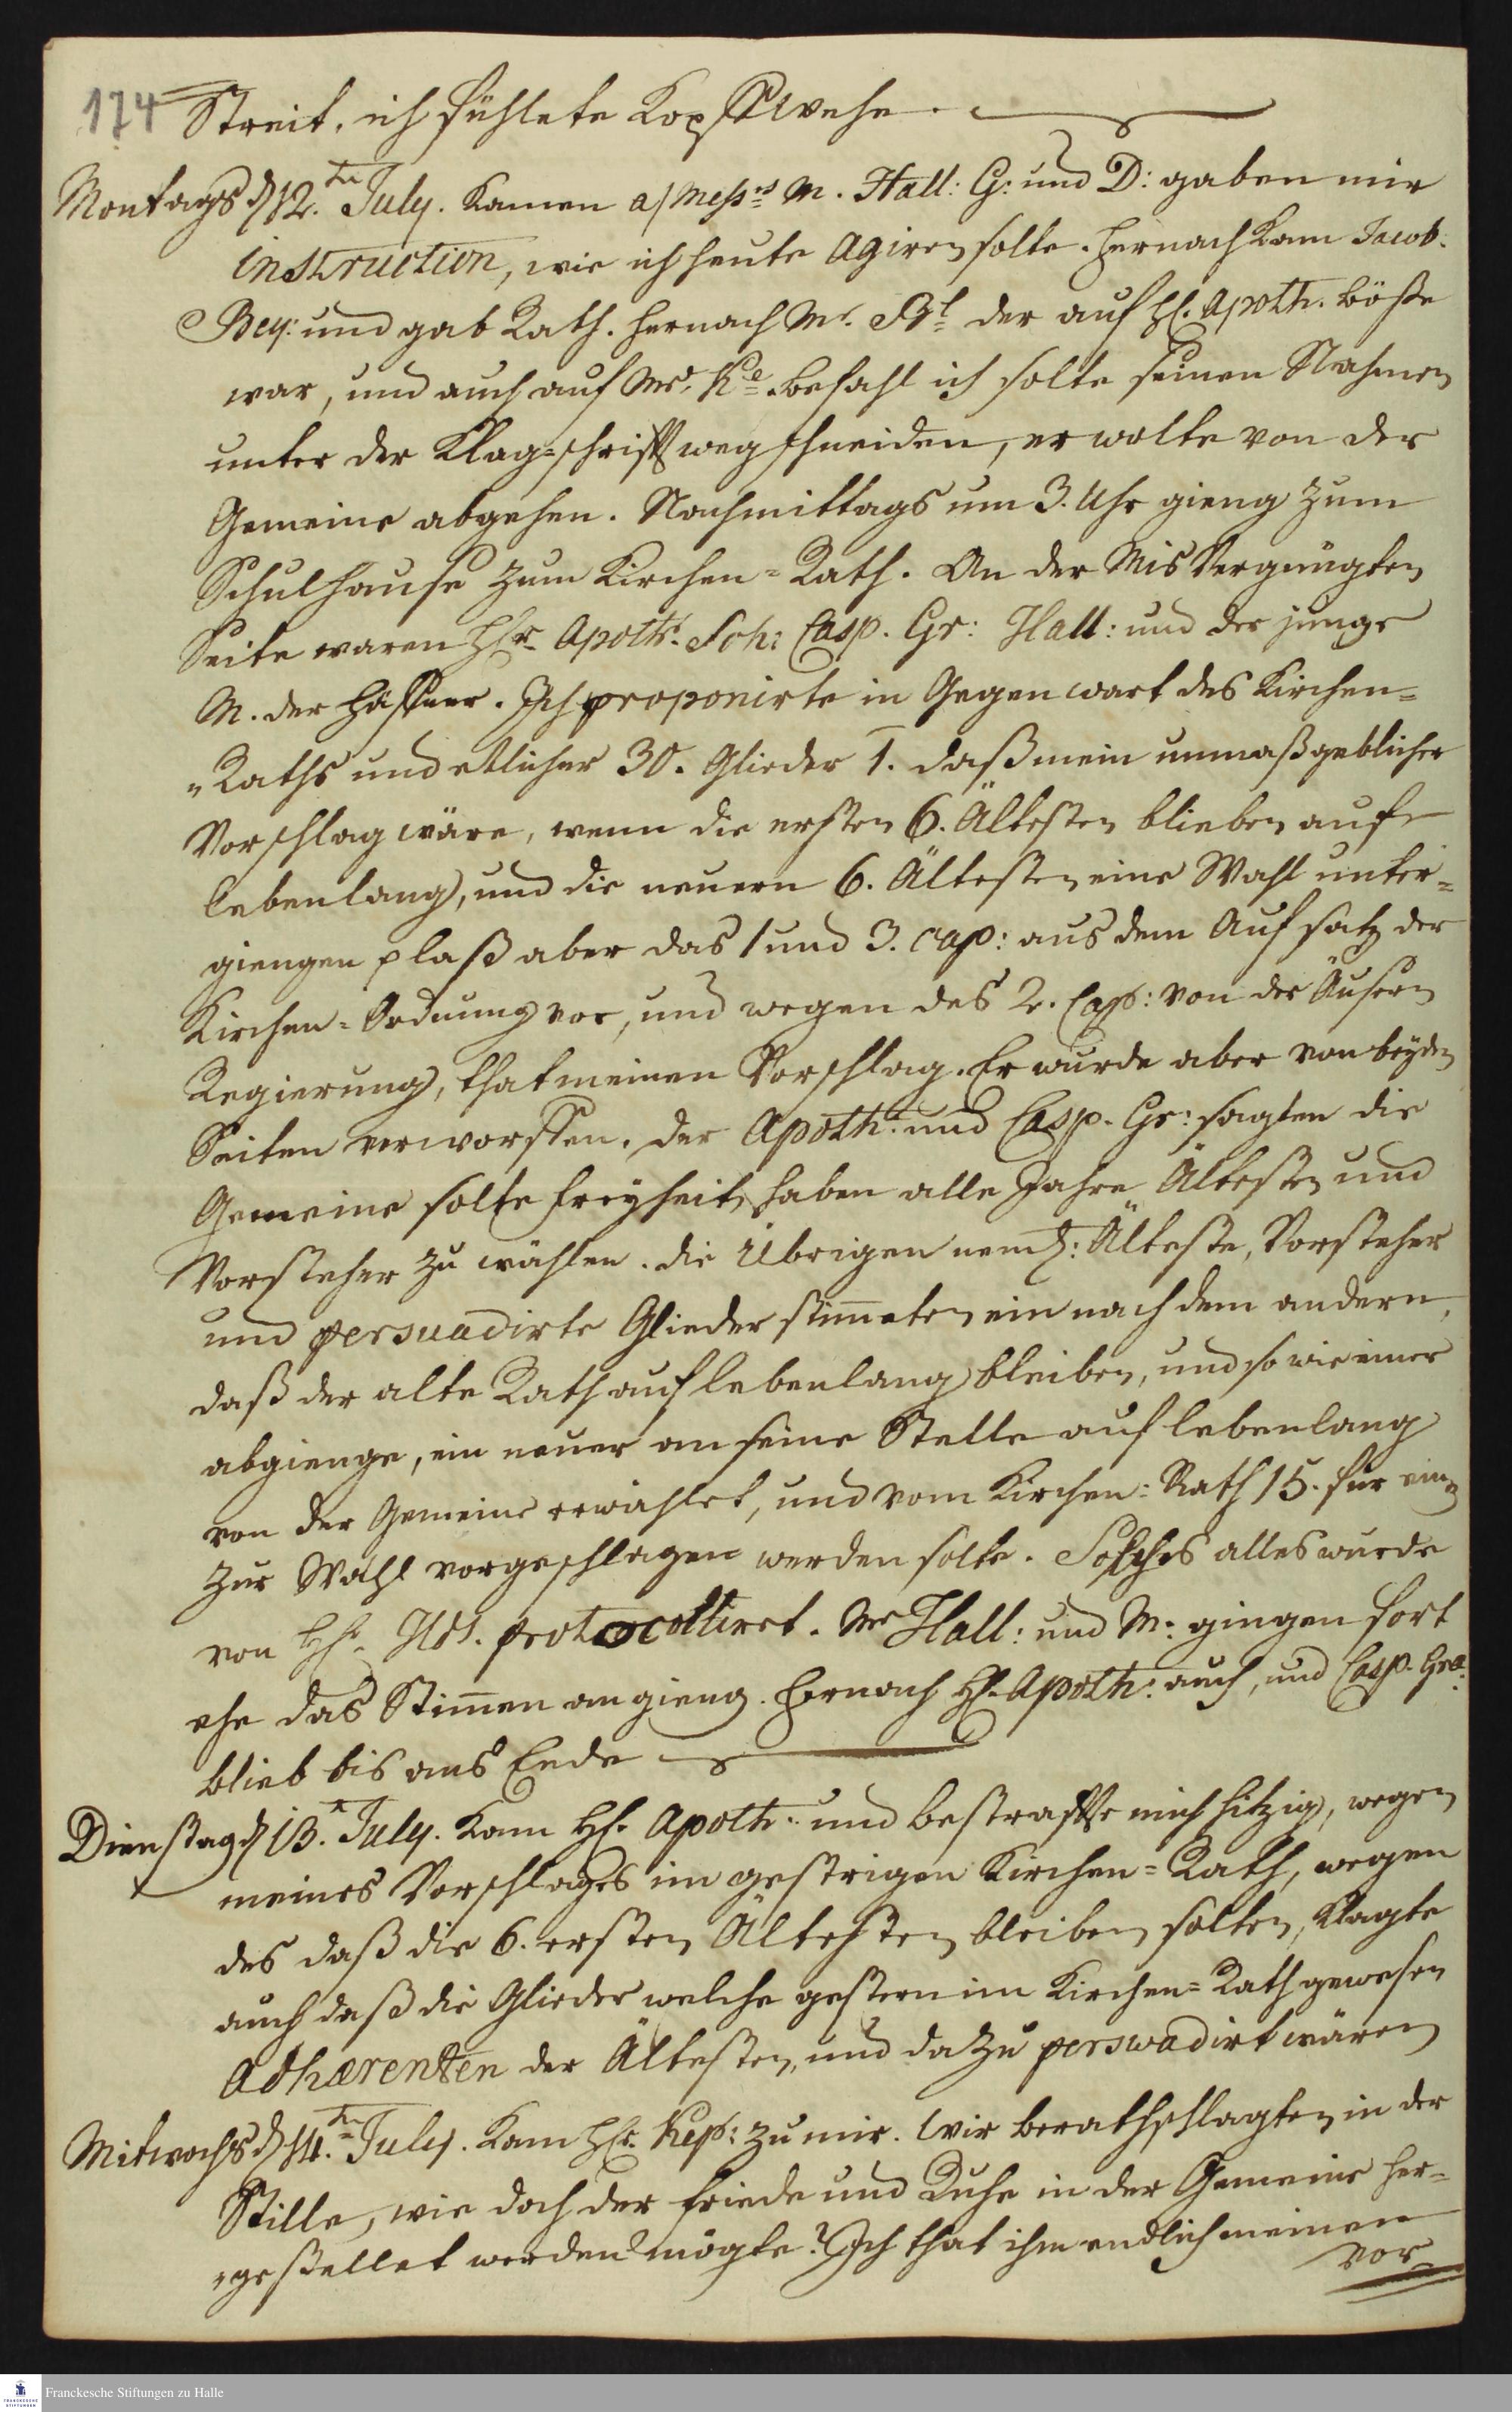 174 Streit. ich fühlete Kopffwehe.
Montags d 12.ten July. Kamen a/ Messrs M. Hall: G: und D: gaben mir
Instruction, wie ich heute agiren solte. Hernach kam Jacob.
Bey: und gab Rath. Hernach Mr. Bl der auf H. Apoth. böße
war, und auch auf Mr. Ke. befahl ich solte seinen Nahmen
unter der Klag-schrifft wegschneiden, er wolte von der
Gemeine abgehen. Nachmittags um 3. Uhr gieng zum
Schulhause zum Kirchen-Rath. An der Misvergnügten
Seite waren HEr Apoth. Sch: Casp. Gr: Hall: und der junge
M. der Häffner. Ich proponirte in Gegenwart des Kirchen-
Raths und etlicher 30. Glieder 1. daß mein unmaßgeblicher
Vorschlag wäre, wenn die ersten 6. Ältesten blieben auf
lebenlang, und die neuern 6. Ältesten eine Wahl unter-
giengen laß aber das 1 und 3. cap: aus dem Aufsatz der
Kirchen-Ordnung vor, und wegen des 2. Cap: von der Äusern
Regierung, that meinen Vorschlag. Er wurde aber von beyden
Seiten verworffen. der Apoth: und Casp. Gr: sagten die
Gemeine solte freyheit haben alle Jahre Ältesten und
Vorsteher zu wählen. die Übrigen neml: Älteste, Vorsteher
und persuadirte Glieder stimeten ein nach dem andern,
daß der alte Rath auf lebenlang bleiben, und so wie einer
abgienge, ein neuer an seine Stelle auf lebenlang
von der Gemeine erwählet, und vom Kirchen-Rath 15. für ein
zur Wahl vorgeschlagen werden solte. Solches alles wurde
von HE. protocolliret. Mr Hall: und M: gingen fort
ehe das Stimen angieng. Hernach H. Apoth: auch, und Casp. Gra:
blieb bis ans Ende
Dienstag d 13. July. Kam H. Apoth: und bestraffte mich hitzig, wegen
meines Vorschlages im gestrigen Kirchen-Rath, wegen
des daß die 6. ersten Ältesten bleiben solten, klagte
auch daß die Glieder welche gestern im Kirchen-Rath gewesen
Adhærenten der Ältesten, und dazu perswadirt wären
Mitwochs d 14.ten July. Kam HE. Kep: zu mir. Wir berathschlagten in der
Stille, wie doch der friede und Ruhe in der Gemeine her-
gestellet werden mögte? Ich that ihm endlich meinen
Vor-
Franckesche Stiftungen zu Halle